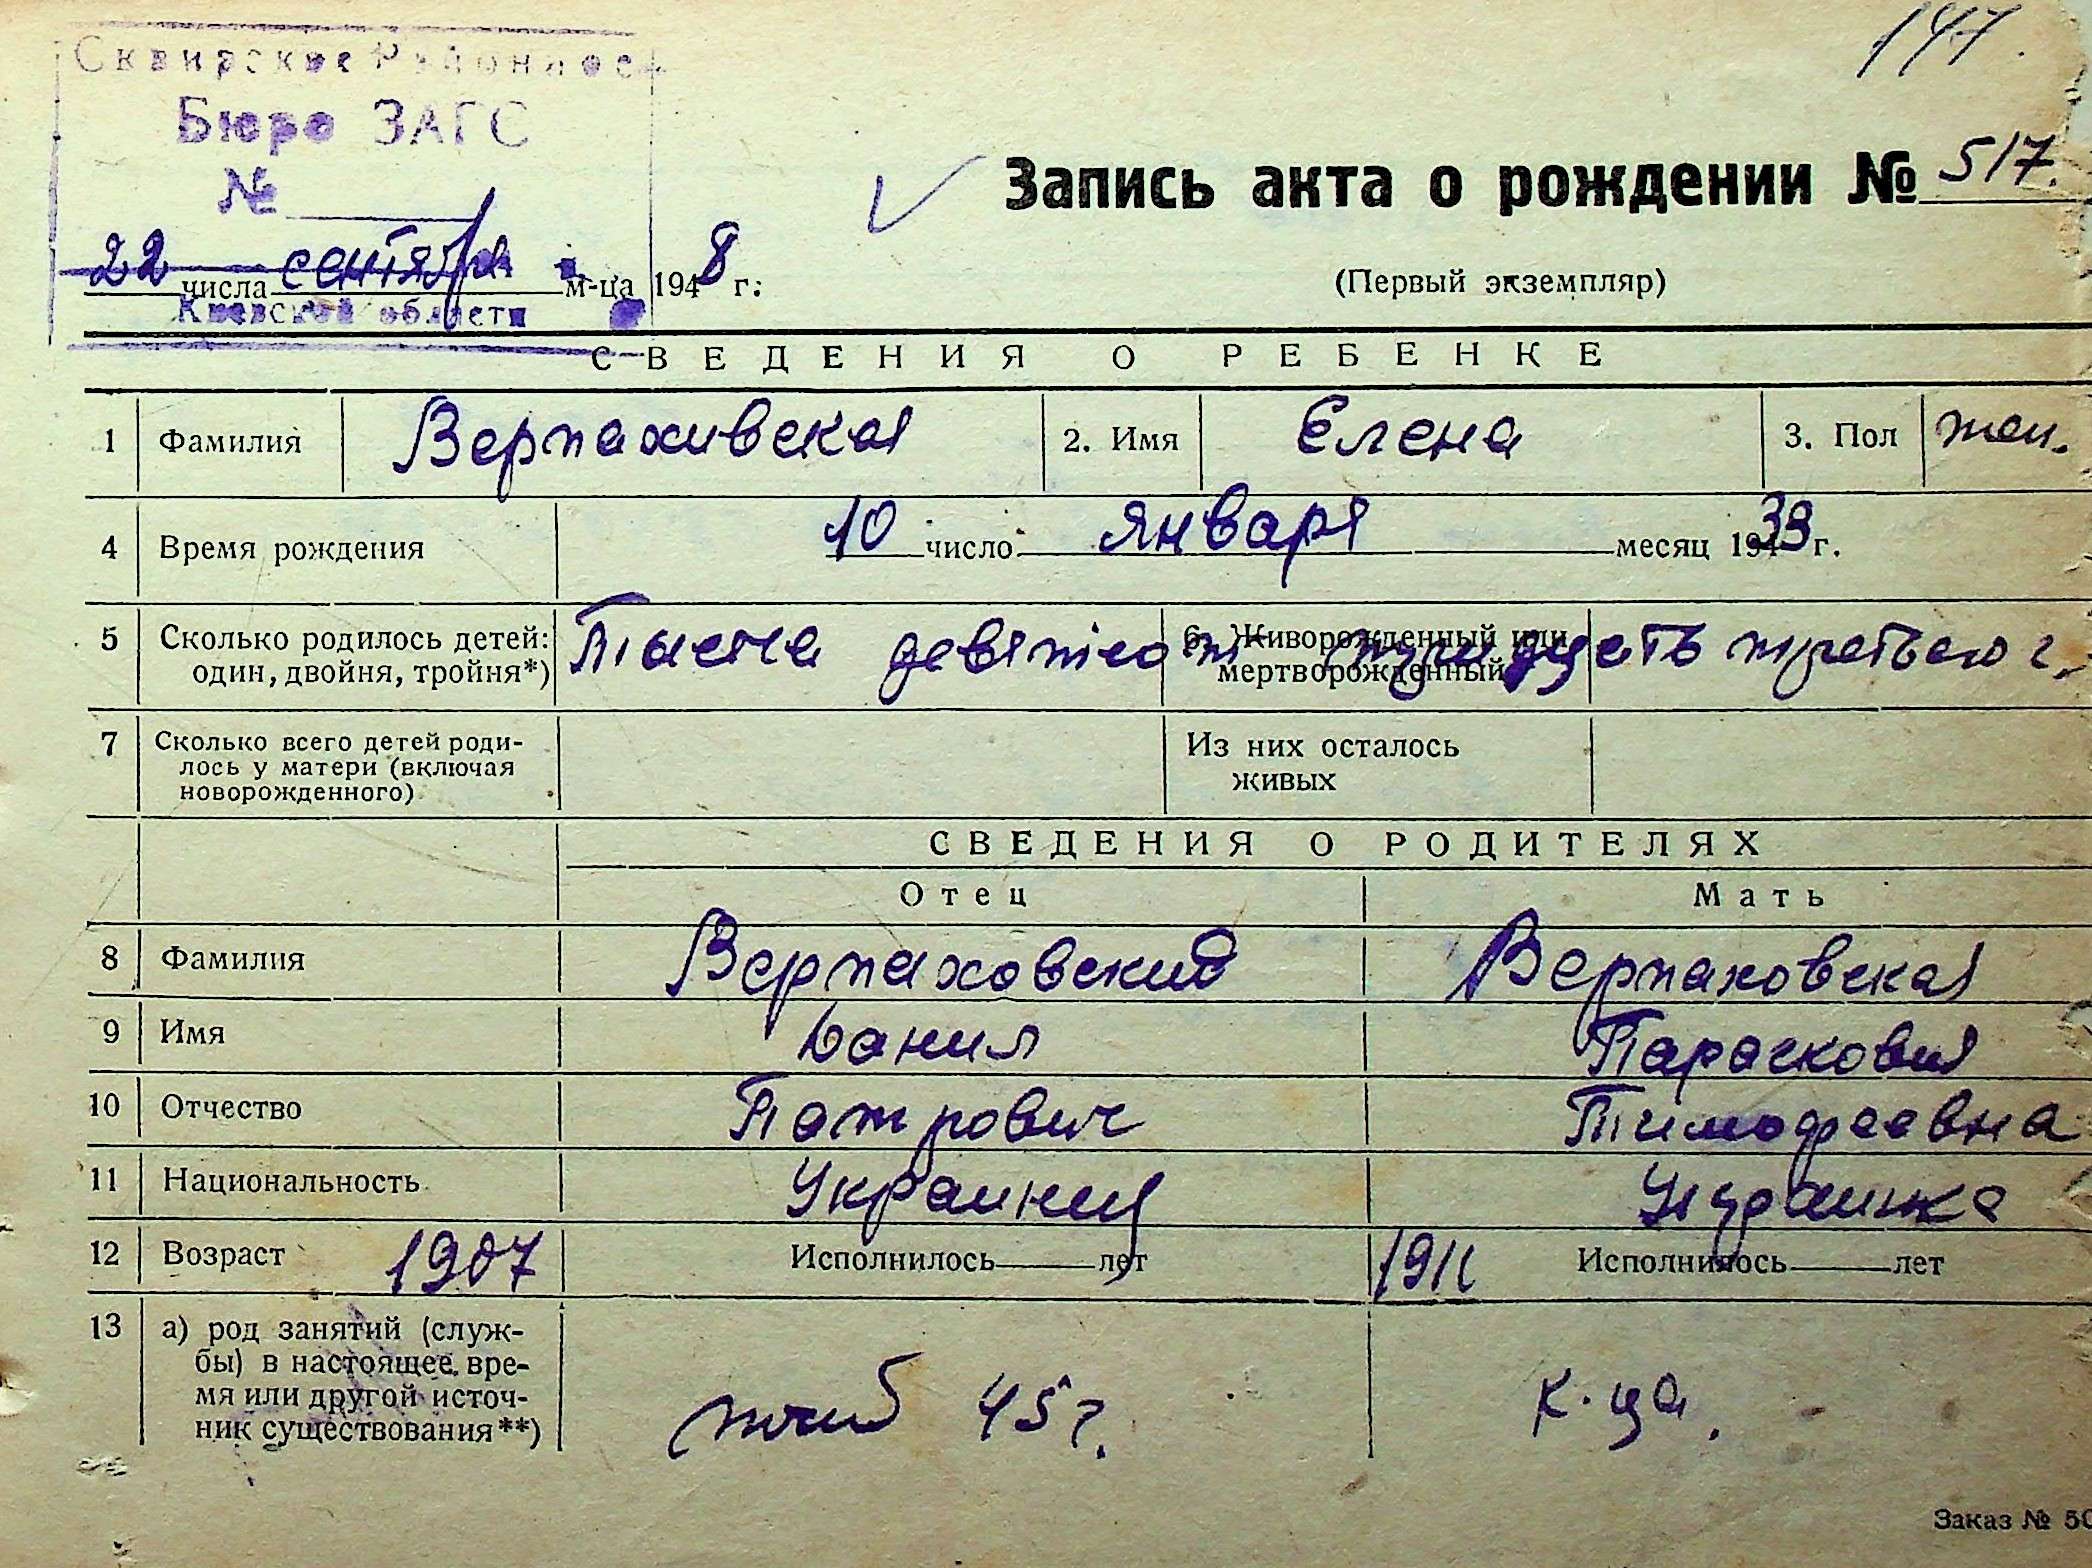 147.
Сквирское Районное
Бюро ЗАГС
№
22 числа сентября м-ца 1948 г.
Киевской области
Запись акта о рождении № 517.
(Первый экземпляр)
СВЕДЕНИЯ О РЕБЕНКЕ
1 Фамилия Верпахивская 2. Имя Елена 3. Пол жен.
4 Время рождения 10 число января месяц 1933 г.
5 Сколько родилось детей: один, двойня, тройня*) 6. Живорожденный или мертворожденный
Тысяча девятсот тридцеть третьего г.
7 Сколько всего детей роди-
лось у матери (включая
новорожденного)
Из них осталось
живых
СВЕДЕНИЯ О РОДИТЕЛЯХ
Отец Мать
8 Фамилия Верпаховский Верпаховская
9 Имя Данил Парасковия
10 Отчество Петрович Тимофеевна
11 Национальность Украинец Украинка
12 Возраст 1907 Исполнилось лет 1911 Исполнилось лет
13 а) род занятий (служ-
бы) в настоящее вре-
мя или другой источ-
ник существования**)
погиб 45 г. к-ца.
Заказ № 50